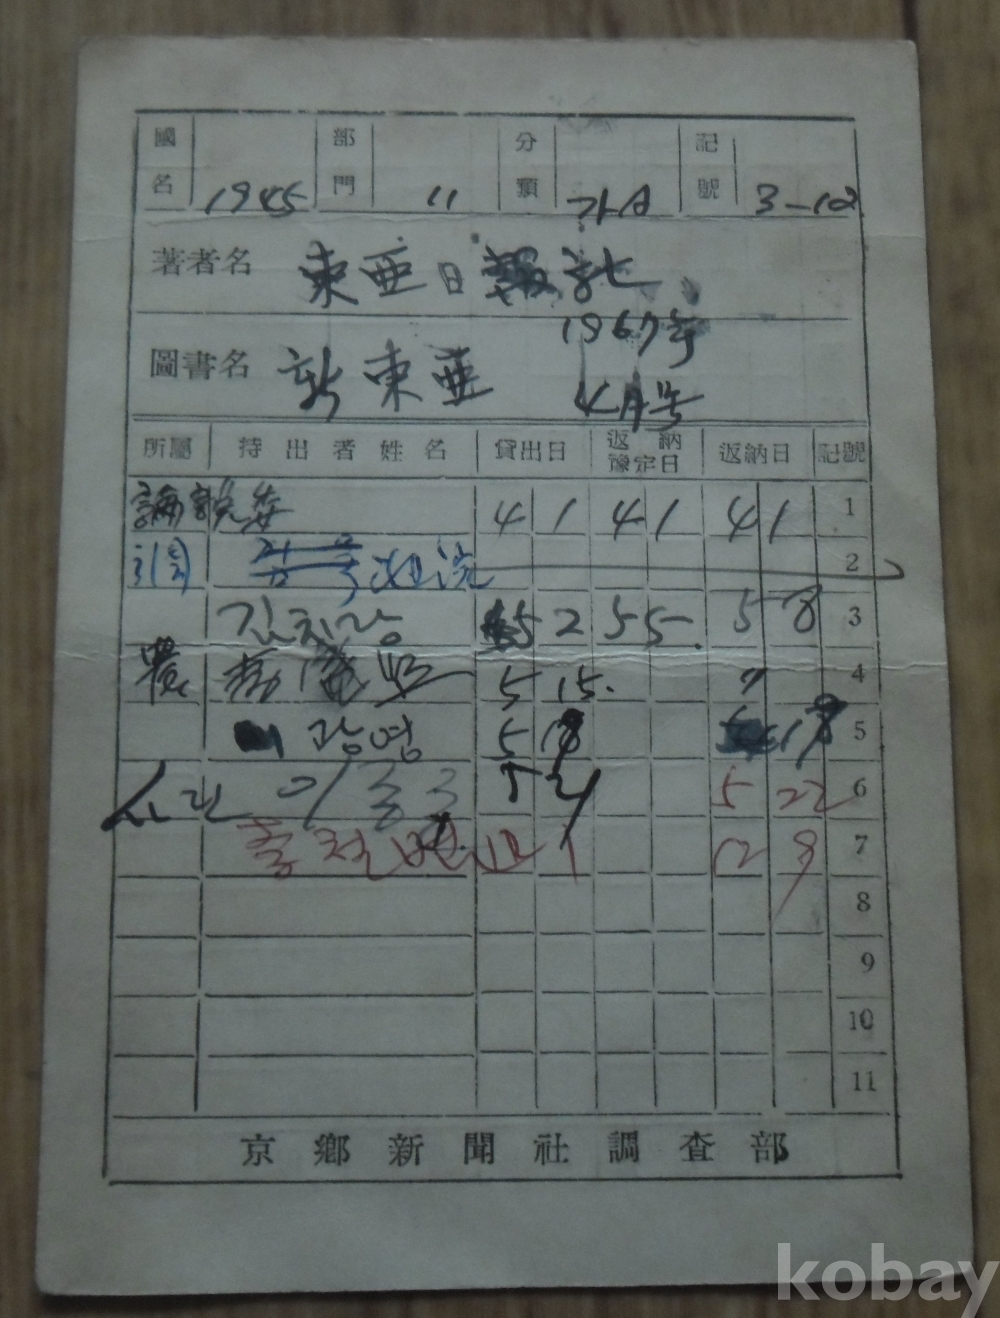 國名 1945 部門 11 分類 가A 記號 3-102
著者名 東亜日報社
1967年
圖書名 新東亜 4月号
所屬 持出者姓名 貸出日 返納豫定日 返納日 記號
論說委 4 1 4 1 4 1 1
2
5 2 5 5. 5 8 3
農 5 15. 〃 4
광명 5 18 5
이종 5 21 5 22 6
12 1 12 9 7
8
9
10
11
京鄕新聞社調査部
kobay